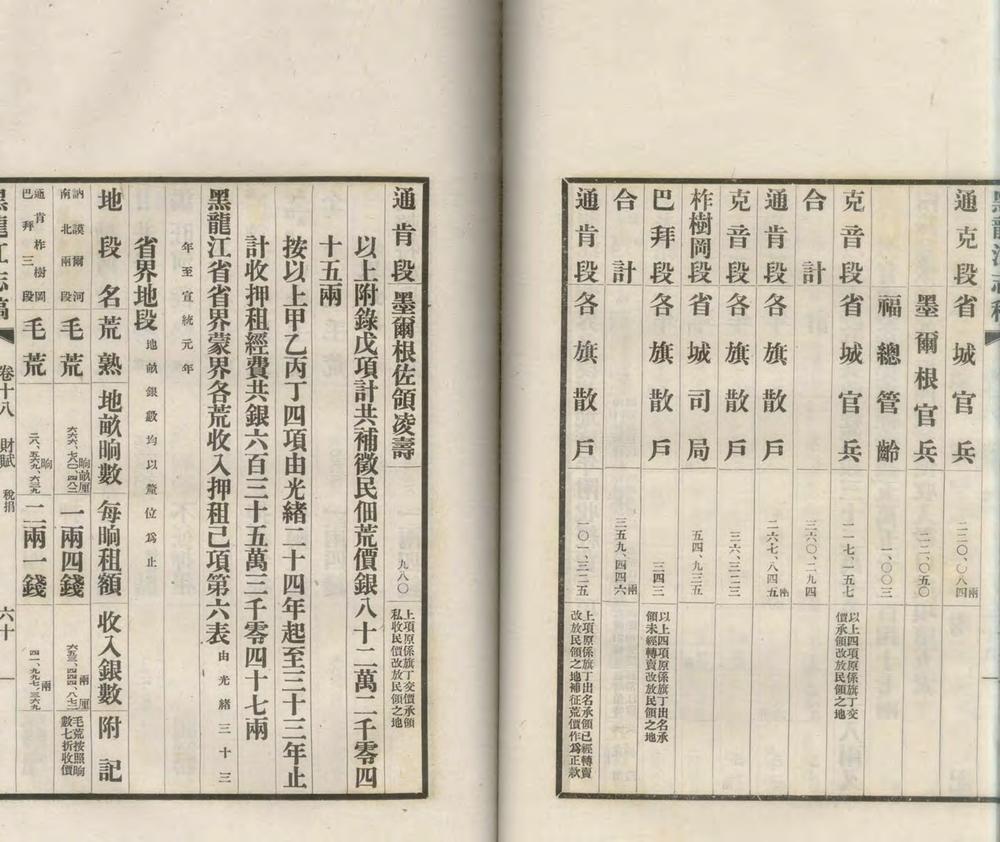 黑龍江志稿
通克段省城官兵 二二〇、〇八四兩
墨爾根官兵 二二、〇五〇
福總管齡 一、〇〇三
克音段省城官兵 一一七、一五七 以上四項原係旗丁交價承領改放民領之地
合計 三六〇、二九四
通肯段各旗散戶 二六七、八四五兩
克音段各旗散戶 三六、三二三
柞樹岡段省城司局 五四、九三五
巴拜段各旗散戶 三四三 以上四項原係旗丁出名承領未經轉賣改放民領之地
合計 三五九、四四六兩
通肯段各旗散戶 一〇一、三二五 上項原係旗丁出名承領已經轉賣改放民領之地補征荒價作爲正款
通肯段墨爾根佐領凌壽 九八〇 上項原係旗丁交價承領私收民價改放民領之地
以上附錄戊項計共補徵民佃荒價銀八十二萬二千零四
十五兩
按以上甲乙丙丁四項由光緒二十四年起至三十三年止
計收押租經費共銀六百三十五萬三千零四十七兩
黑龍江省省界蒙界各荒收入押租己項第六表 由光緒三十三
年至宣統元年
省界地段 地畝銀數均以釐位爲止
地段名 荒熟 地畝晌數 每晌租額 收入銀數 附記
訥謨爾河南北兩段 毛荒 六六六、七八〇、四八二晌畝厘 一兩四錢 六五三、四四四、八七二兩厘 毛荒按照晌數七折收價
通肯柞樹岡巴拜三段 毛荒 二八、五六九、六三九晌 二兩一錢 四一、九九七、三六九兩
黑龍江志稿 卷十八 財賦 稅捐 六十一